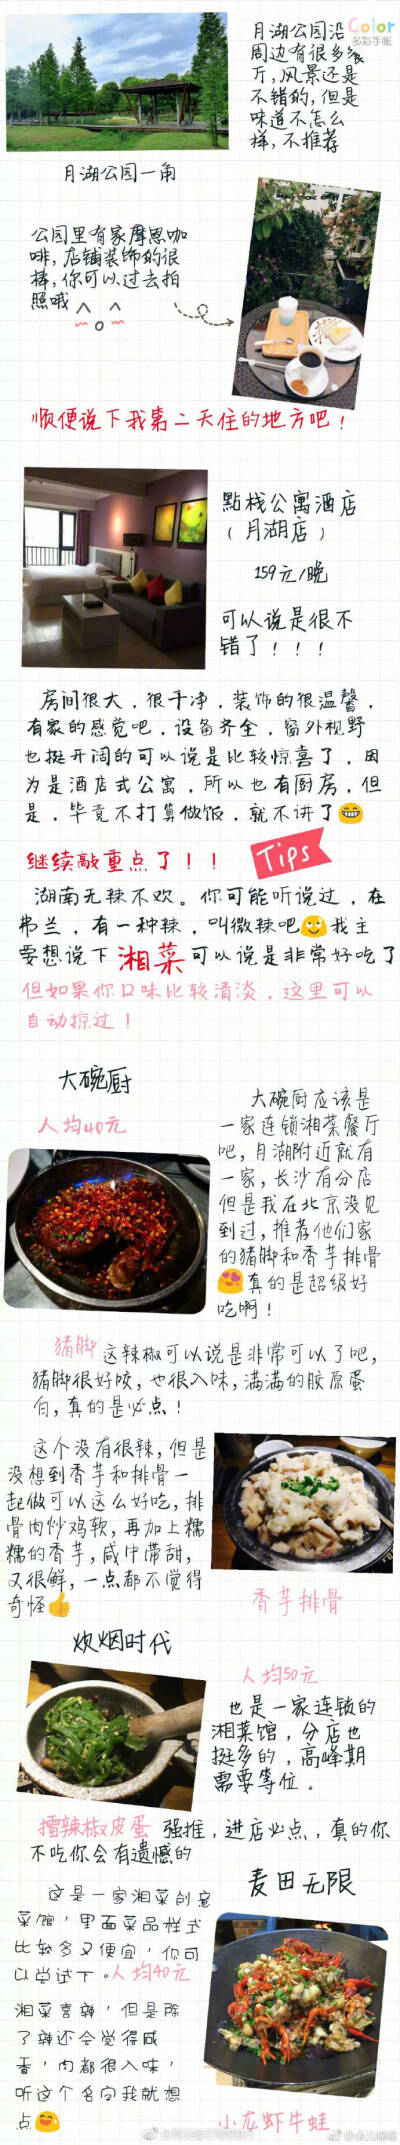 Color
多彩手帐
月湖公园沿
周边有很多餐
厅,风景还是
不错的,但是
味道不怎么
样,不推荐
月湖公园一角
公园里有家摩思咖
啡,店铺装饰的很
棒,你可以过去拍
照哦
顺便说下我第二天住的地方吧!
點栈公寓酒店
(月湖店)
159元/晚
可以说是很不
错了!!!
房间很大,很干净,装饰的很温馨,
有家的感觉吧,设备齐全,窗外视野
也挺开阔的可以说是比较惊喜了,因
为是酒店式公寓,所以也有厨房,但
是,毕竟不打算做饭,就不讲了😁
继续敲重点了!!
Tips
湖南无辣不欢。你可能听说过,在
弗兰,有一种辣,叫微辣吧🙄我主
要想说下湘菜可以说是非常好吃了
但如果你口味比较清淡,这里可以
自动掠过!
大碗厨
人均40元
大碗厨应该是
一家连锁湘菜餐厅
吧,月湖附近就有
一家,长沙有分店
但是我在北京没见
到过,推荐他们家
的猪脚和香芋排骨
😍真的是超级好
吃啊!
猪脚 这辣椒可以说是非常可以了吧,
猪脚很好咬,也很入味,满满的胶原蛋
白,真的是必点!
这个没有很辣,但是
没想到香芋和排骨一
起做可以这么好吃,排
骨肉炒鸡软,再加上糯
糯的香芋,咸中带甜,
又很鲜,一点都不觉得
奇怪👍
香芋排骨
炊烟时代
人均50元
也是一家连锁的
湘菜馆,分店也
挺多的,高峰期
需要等位。
擂辣椒皮蛋 强推,进店必点,真的你
不吃你会有遗憾的
麦田无限
这是一家湘菜创意
菜馆,里面菜品样式
比较多又便宜,你可
以尝试下。人均40元
湘菜喜辣,但是除
了辣还会觉得咸
香,肉都很入味,
听这个名字我就想
点😄
小龙虾牛蛙